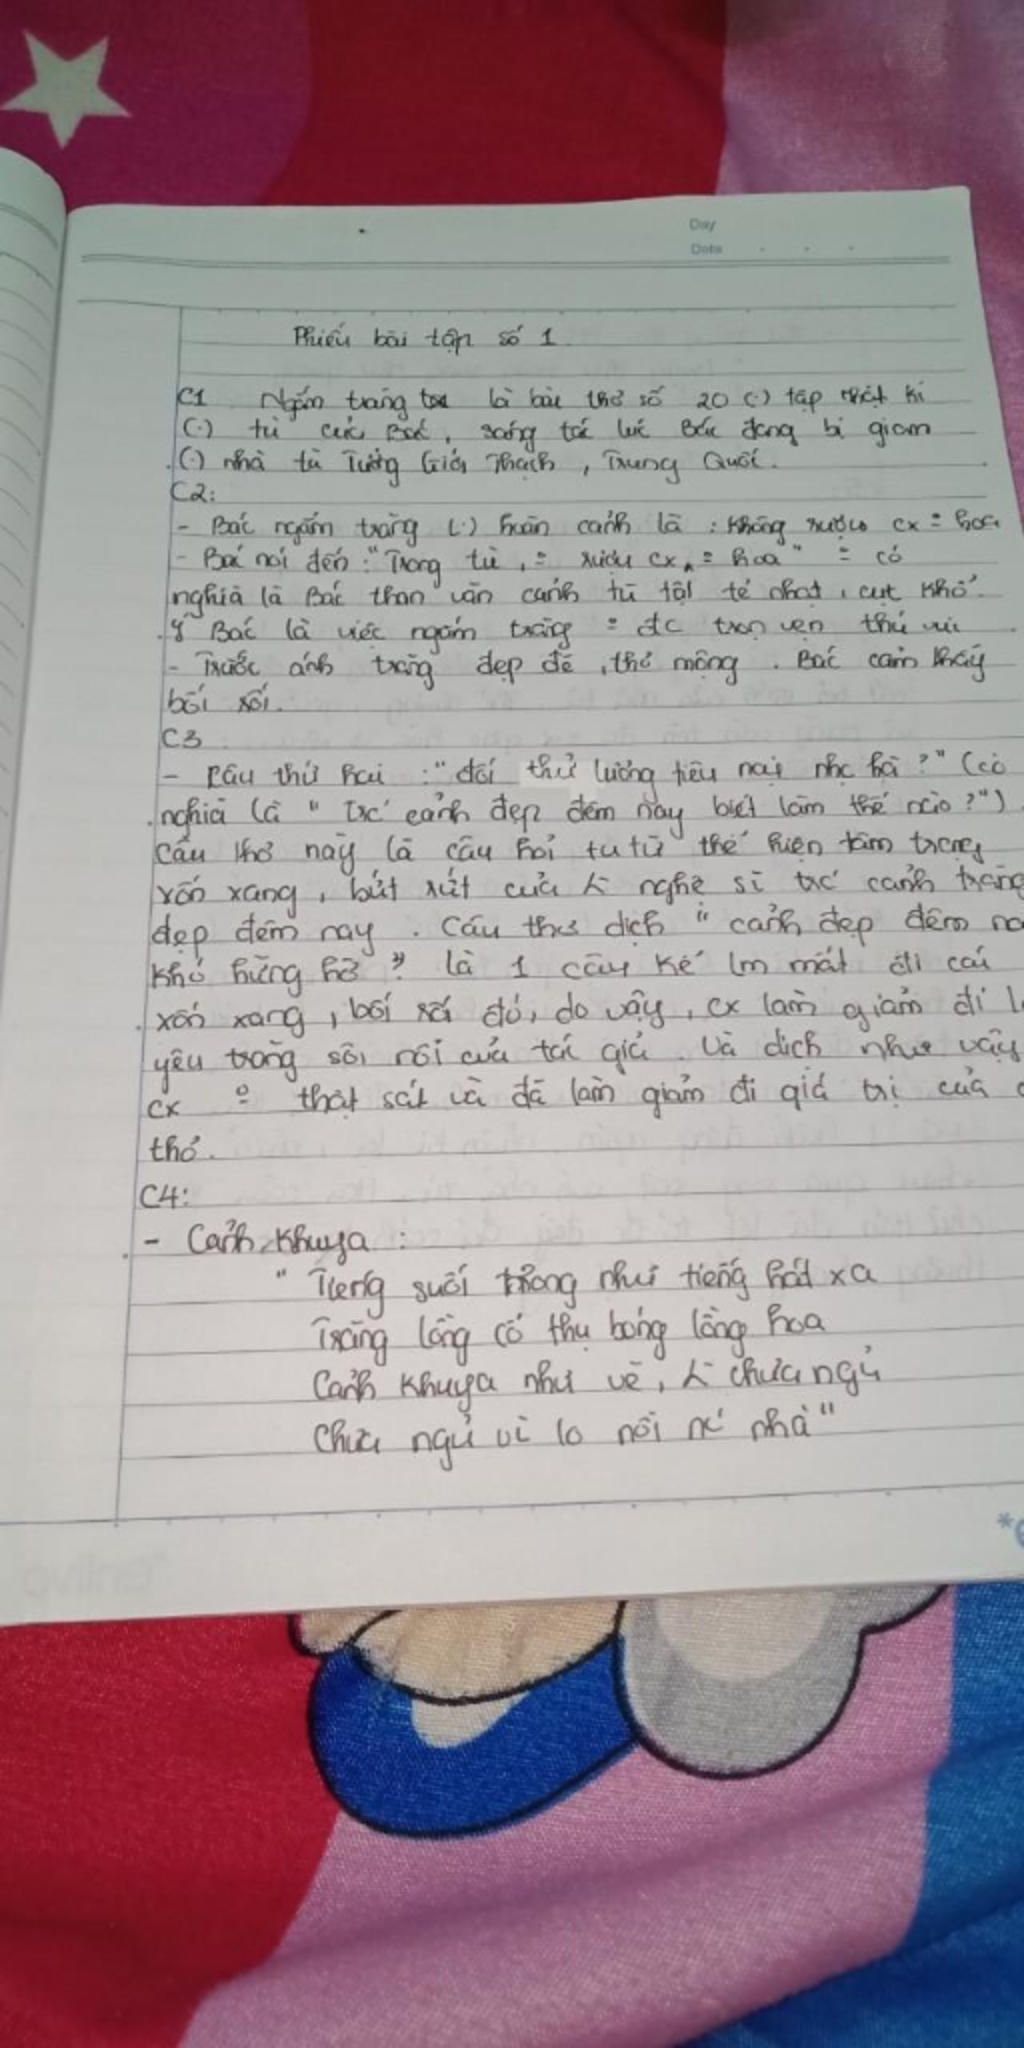 Day
Date
Phiếu bài tập số 1
C1 Ngắm trăng là bài thơ số 20 (.) tập nhật kí
(.) tù của Bác, sáng tác lúc Bác đang bị giam
(.) nhà tù Tưởng Giới Thạch, Trung Quốc.
C2:
- Bác ngắm trăng (.) hoàn cảnh là : không rượu cx = hoa
- Bác nói đến: "Trong tù, = rượu cx = hoa" = có
nghĩa là Bác than vãn cảnh tù tội tế nhạt, cực khổ.
Ý Bác là việc ngắm trăng = đc trọn vẹn thú vui
- Trước ánh trăng đẹp đẽ, thơ mộng. Bác cảm thấy
bối rối.
C3
- Câu thứ hai : "đối thử lương tiêu nại nhc hà?" (có
nghĩa là " trc' cảnh đẹp đêm nay biết làm thế nào?")
Câu thơ này là câu hỏi tu từ thể hiện tâm trạng
xốn xang, bứt rứt của nghệ sĩ trc' cảnh trăng
đẹp đêm nay. Câu thơ dịch " cảnh đẹp đêm
khó hững hờ" là 1 câu kể lm mất đi cái
xốn xang, bối rối đó, do vậy, cx làm giảm đi
yêu trăng sôi nổi của tác giả. Và dịch như vậy
cx = thật sát và đã làm giảm đi giá trị của
thơ.
C4:
- Cảnh khuya :
"Tiếng suối trong như tiếng hát xa
Trăng lồng cổ thụ bóng lồng hoa
Cảnh khuya như vẽ, chưa ngủ
Chưa ngủ vì lo nỗi nc' nhà"